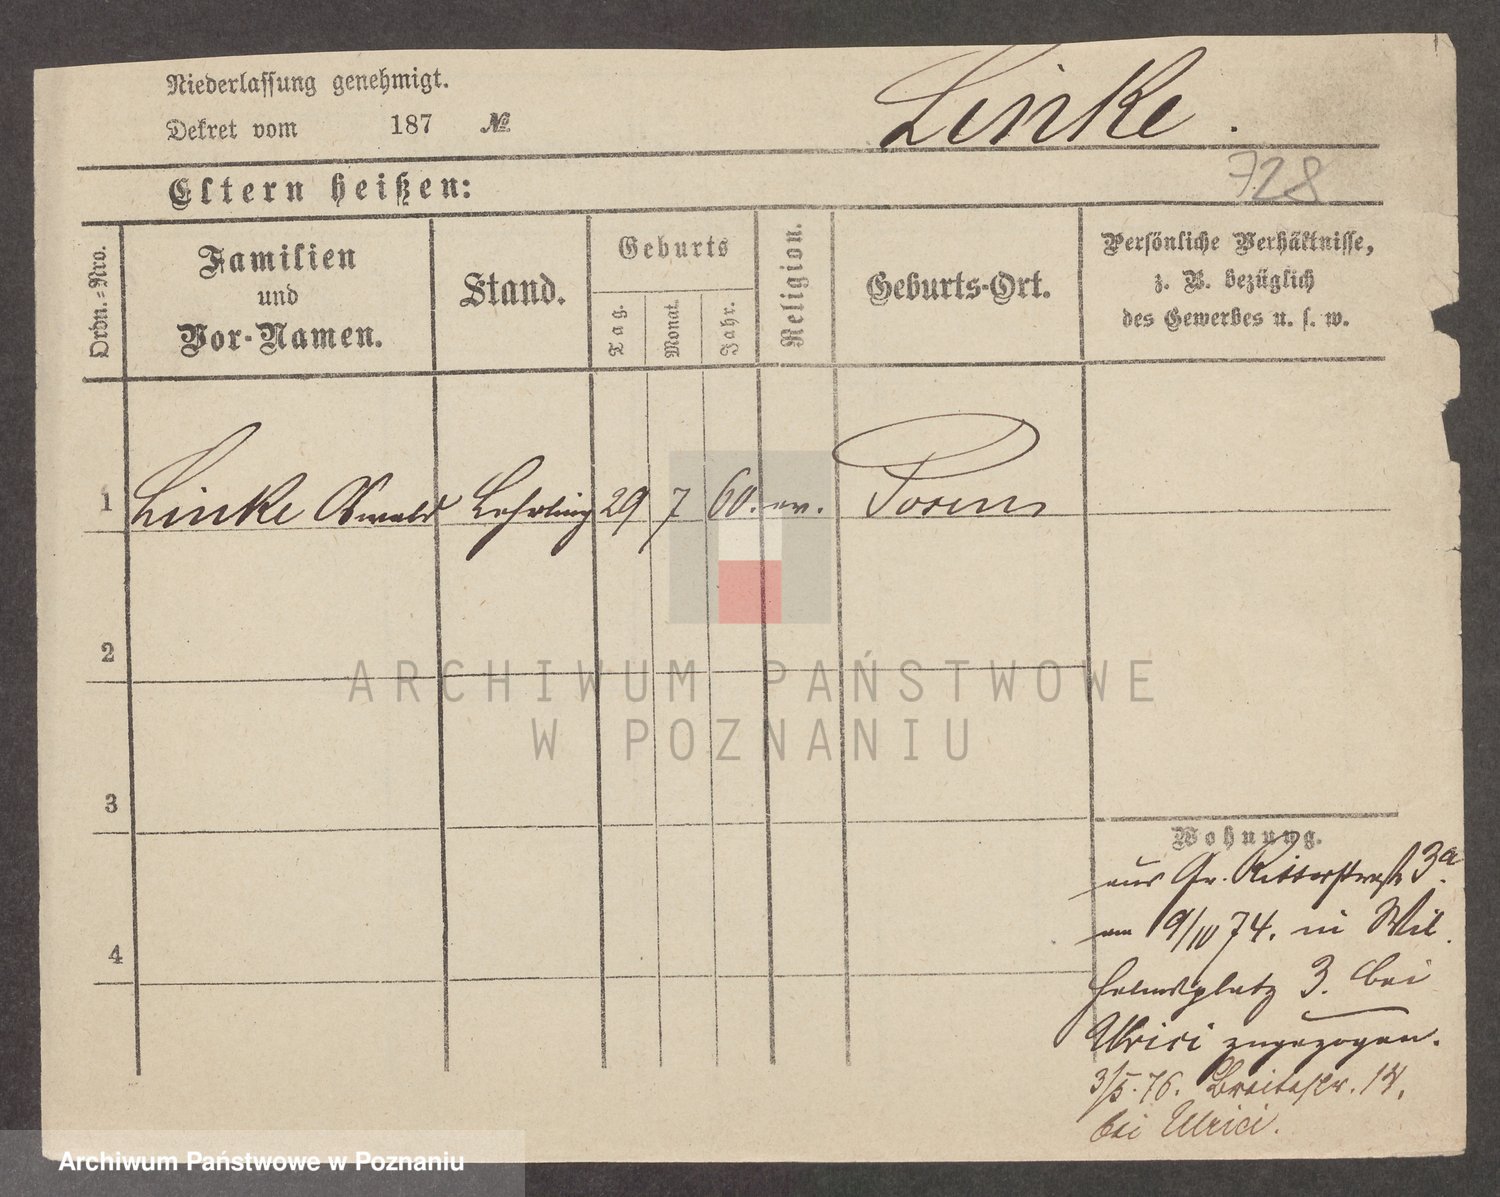 Niederlassung genehmigt.
Dekret vom 187 №
Linke.
728
Eltern heißen:
Ordn.-Nro.
Familien
und
Vor-Namen.
Stand.
Geburts
Tag.
Monat.
Jahr.
Religion.
Geburts-Ort.
Persönliche Verhältnisse,
z. B. bezüglich
des Gewerbes u. s. w.
1 Linke Oswald Lehrling 29 7 60. ev. Posen
2
3
4
Wohnung.
aus Gr. Ritterstraße 3a.
am 9/IV 74. in Wil
helmsplatz 3. bei
Ulrici zugezogen.
3/5. 76. Breitestr. 14.
bei Ulrici.
ARCHIWUM PAŃSTWOWE
W POZNANIU
Archiwum Państwowe w Poznaniu